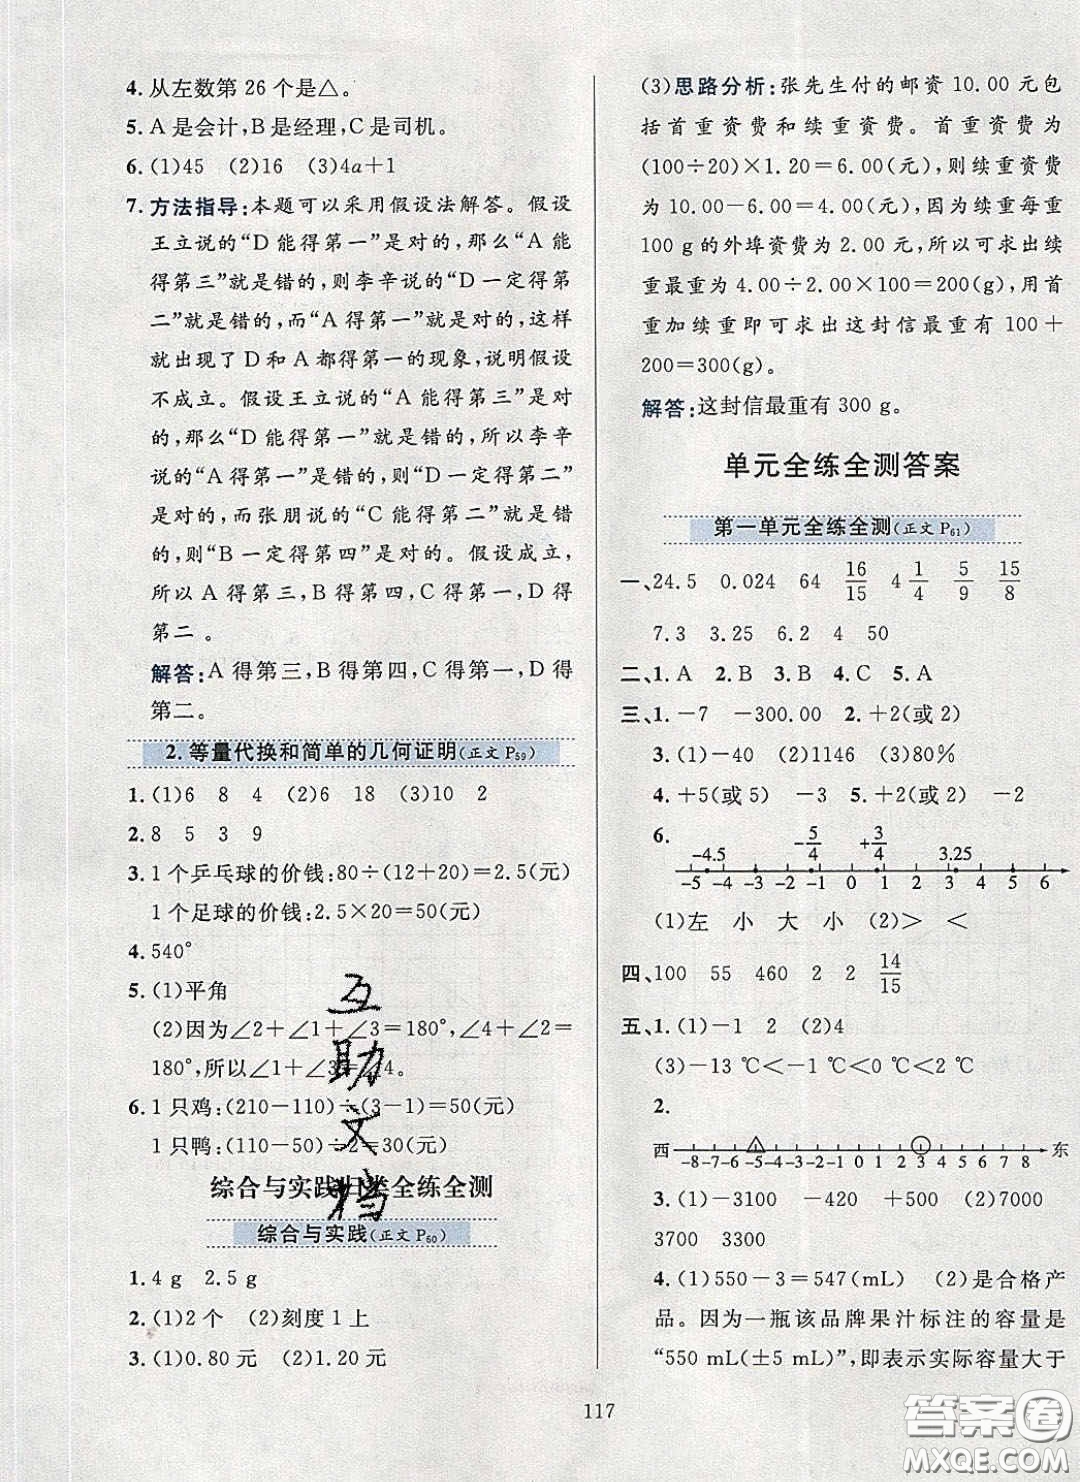 4. 从左数第 26 个是△。
5. A 是会计,B 是经理,C 是司机。
6. (1)45 (2)16 (3)4a+1
7. 方法指导:本题可以采用假设法解答。假设
王立说的“D 能得第一”是对的,那么“A 能
得第三”就是错的,则李辛说的“D 一定得第
二”就是错的,而“A 得第一”就是对的,这样
就出现了 D 和 A 都得第一的现象,说明假设
不成立。假设王立说的“A 能得第三”是对
的,那么“D 能得第一”就是错的, 所以李辛
说的“A 得第一”是错的,则“D 一定得第二”
就是对的,而张朋说的“C 能得第二”是错
的,则“B 一定得第四”是对的。假设成立,
所以 A 得第三,B 得第四,C 得第一,D 得
第二 。
解答:A 得第三,B 得第四,C 得第一,D 得
第二。
2. 等量代换和简单的几何证明(正文 P59)
1. (1)6 8 4 (2)6 18 (3)10 2
2. 8 5 3 9
3. 1 个乒乓球的价钱:80÷(12+20)=2.5(元)
1 个足球的价钱:2.5×20=50(元)
4. 540°
5. (1)平角
(2)因为∠2+∠1+∠3=180°,∠4+∠2=
180°,所以∠1+∠3=∠4。
6. 1 只鸡:(210-110)÷(3-1)=50(元)
1 只鸭:(110-50)÷2=30(元)
综合与实践归类全练全测
综合与实践(正文 P60)
1. 4 g 2.5 g
2. (1)2 个 (2)刻度 1 上
3. (1)0.80 元 (2)1.20 元
(3)思路分析:张先生付的邮资 10.00 元包
括首重资费和续重资费。首重资费为
(100÷20)×1.20=6.00(元),则续重资费
为 10.00-6.00=4.00(元),因为续重每重
100 g 的外埠资费为 2.00 元,所以可求出续
重最重是 4.00÷2.00×100=200(g),用首
重加续重即可求出这封信最重有 100+
200=300(g)。
解答:这封信最重有 300 g。
单元全练全测答案
第一单元全练全测(正文 P61)
一、24.5 0.024 64 16/15 4 1/4 5/9 15/8
7.3 3.25 6.2 4 50
二、1. A 2. B 3. B 4. C 5. A
三、1. -7 -300.00 2. +2(或 2)
3. (1)-40 (2)1100 (3)80%
4. +5(或 5) -3 5. +2(或2) -2
6. -4.5 -5/4 +3/4 3.25
-5 -4 -3 -2 -1 0 1 2 3 4 5 6
(1)左 小 大 小 (2)> <
四、100 55 460 2 2 14/15
五、1. (1)-1 2 (2)4
(3)-13 ℃<-1 ℃<0 ℃<2 ℃
2.
西 -8 -7 -6 -5 -4 -3 -2 -1 0 1 2 3 4 5 6 7 8 东
3. (1)-1000 -400 +500 (2)7000
3700 3300
4. (1)550-3=547(mL) (2)是合格产
品。因为一瓶该品牌果汁标注的容量是
“550 mL(±5 mL)”,即表示实际容量大于
互助文档
117
答案圈
MXQE.COM